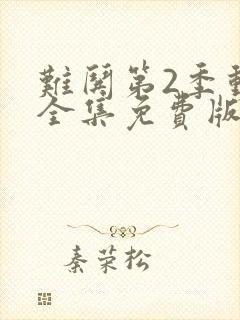 難鬨第2季動
全集免費版
秦荣松